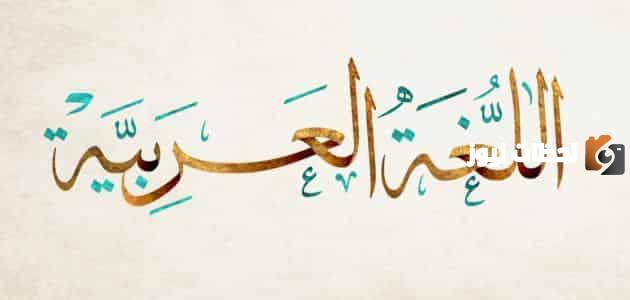 اللُّغَة العَرَبِيَّة
لحظات نيوز